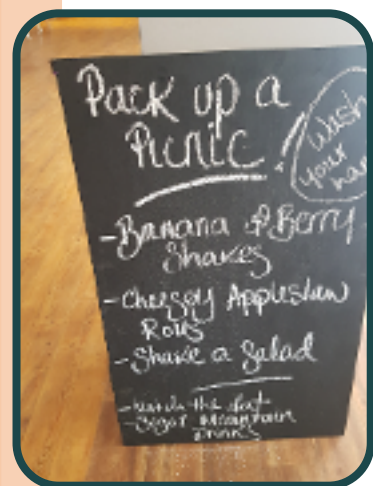 Pack up a
Picnic
Wash
your han
- Banana & Berry
Shakes
- Cheesy Appleslaw
Rolls
- Shake a Salad
- Watch the
- Sugar Mountain
Drinks